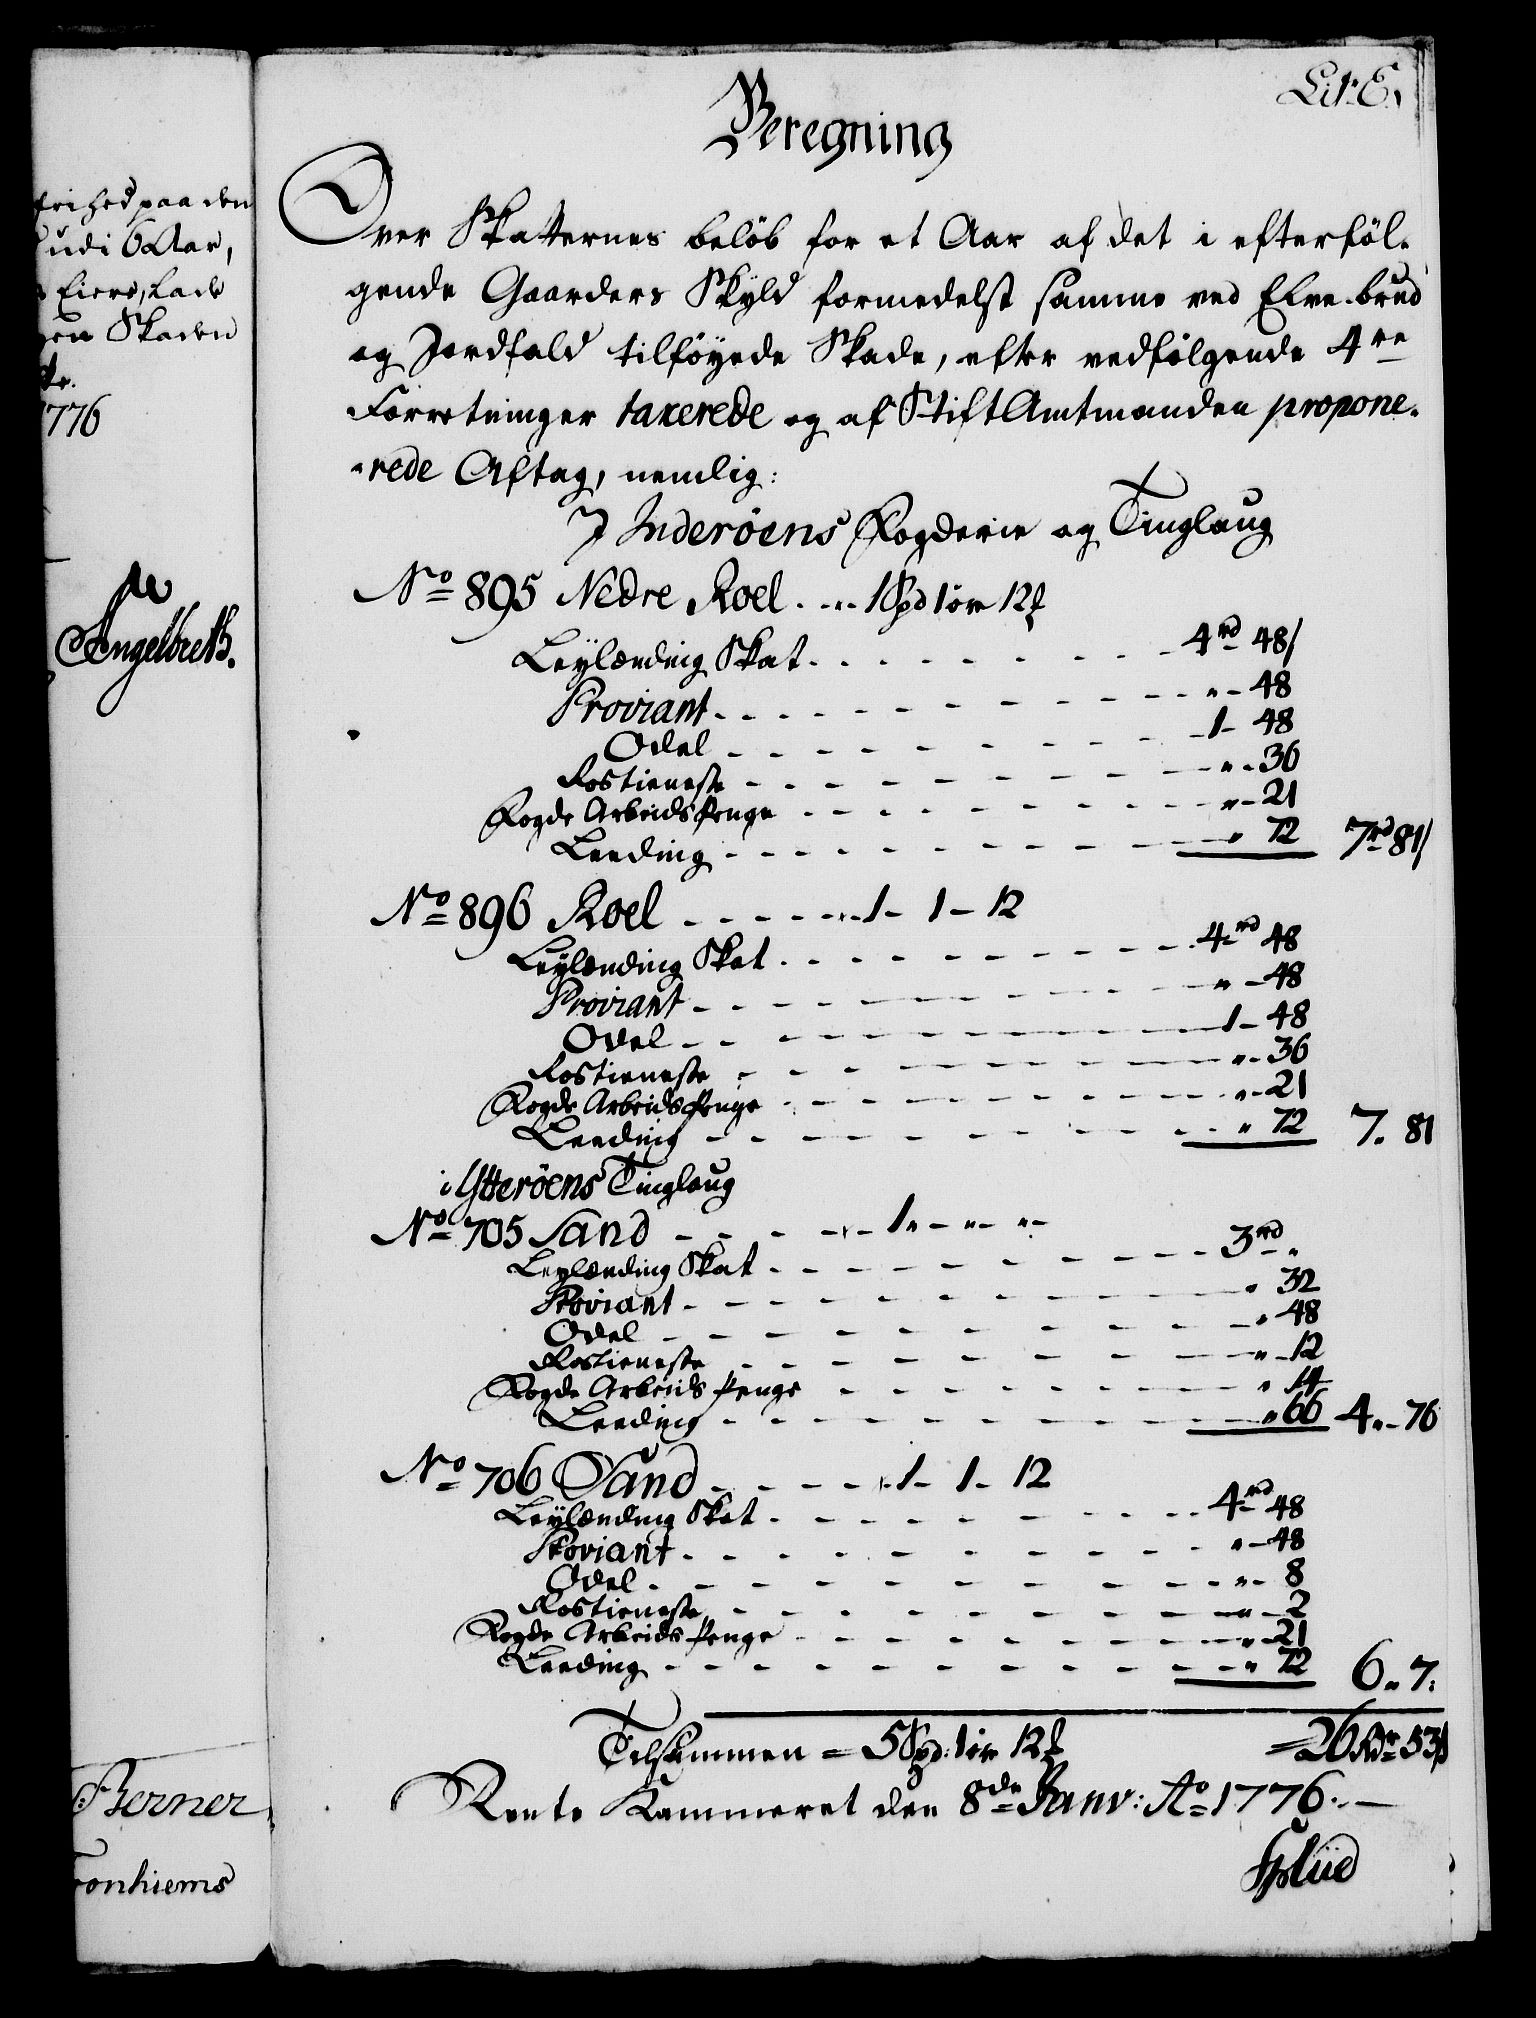 Lit: E.
Beregning
Over Skatternes beløb for et Aar af det i efterføl-
gende Gaarders Skyld formedelst samme ved Elve-brud
og Jordfald tilføyede Skade, efter vedfølgende 4re
Forretninger taxerede og af Stift Amtmanden propone-
-rede Aftag, nemlig:
I Inderøens Fogderie og Tinglaug
No 895 Nedre Roel . . . . 1 Spd 1 ør 12 ₤
Leylænding Skat . . . . . . . . 4 rd 48 s
Proviant . . . . . . . . . . " - 48
Odel - - - - - - - - - 1 - 48
Rostieneste - - - - - - - - " - 36
Fogde Arbeids Penge - - - - - - - " - 21
Leeding - - - - - - - - - " 72 7 rd 81 s
No 896 Roel - - - - - - 1 - 1 - 12
Leylænding Skat . - - - - - - - - 4 rd 48
Proviant - - - - - - - - - " - 48
Odel - - - - - - - - - 1 - 48
Rostieneste - - - - - - - - " - 36
Fogde Arbeids Penge - - - - - - - " - 21
Leeding - - - - - - - - - " 72 7. 81
i Ytterøens Tinglaug
No 705 Sand - - - - - 1 " - " - " -
Leylænding Skat - - - - - - - - 3 rd "
Proviant - - - - - - - - - " 32
Odel - - - - - - - - - " 48
Rostieneste - - - - - - - - " - 12
Fogde Arbeids Penge - - - - - - - " 14
Leeding - - - - - - - - - " 66 4 " - 76
No 706 Sand - - - - - 1 - 1 - 12
Leylænding Skat . - - - - - - - 4 rd 48
Proviant . - - - - - - - - " - 48
Odel . - - - - - - - - " - 8
Rostieneste - - - - - - - - " - 2
Fogde Arbeids Penge - - - - - - - " - 21
Leeding - - - - - - - - - " 72 6 " 7:
Tilsammen = 5 Spd: 1 ør 12 ₤ = 26 Rdr 53 s
Rente Kammeret den 8de Janv: Ao 1776. —
frihed paa den
udi 6 Aar,
Eiere, Lade
Skaden
1776
Engelbreth.
Berner
ronhiems